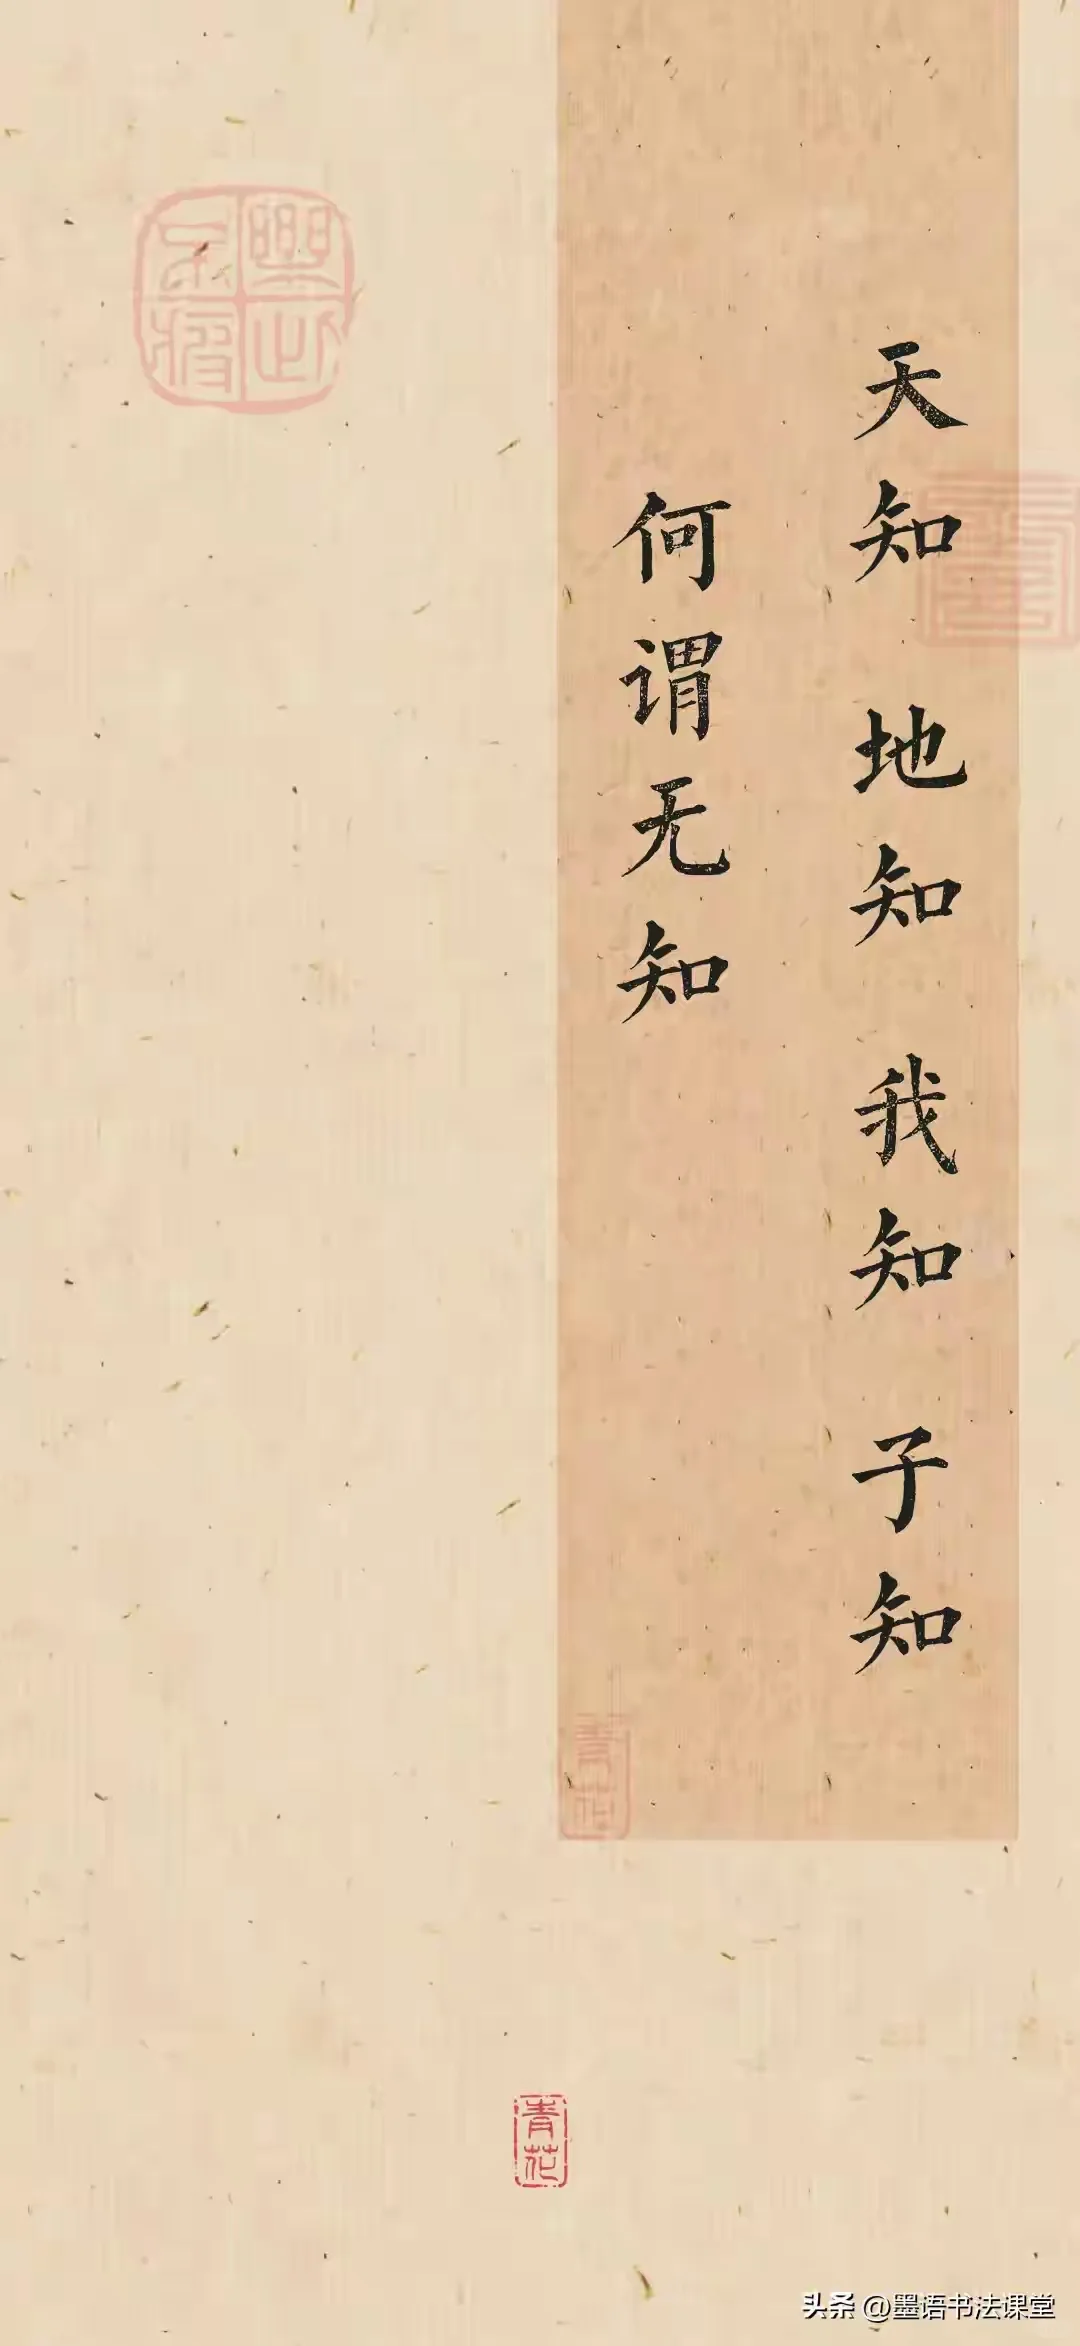 天知 地知 我知 子知
何谓无知
青花
青花
头条 @墨语书法课堂